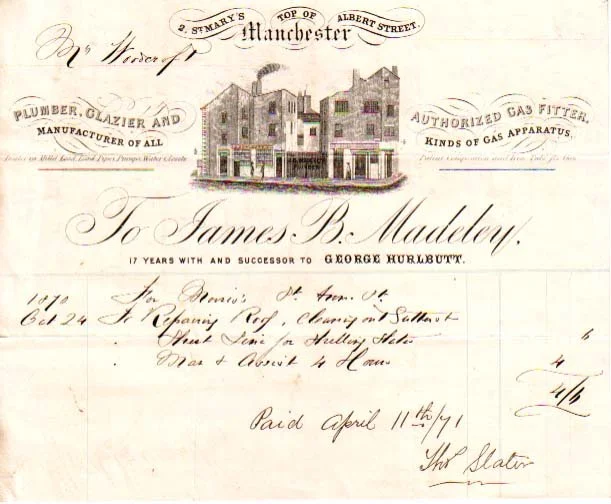 2, ST MARY'S TOP OF ALBERT STREET.
Manchester
Mr Woodcroft
PLUMBER, GLAZIER AND
MANUFACTURER OF ALL
Dealer in Milled Lead, Lead Pipes, Pumps, Water Closets
AUTHORIZED GAS FITTER.
KINDS OF GAS APPARATUS.
Patent Composition and Iron Tube for Gas
To James B. Madeley.
17 YEARS WITH AND SUCCESSOR TO GEORGE HURLBUTT.
1870 For St Ann St
Oct 24 To Repairing Roof, Cleaning out
Lime for Slates 6
Man & Assist 4 Hours 4
4/6
Paid April 11th/71
Thos Slater